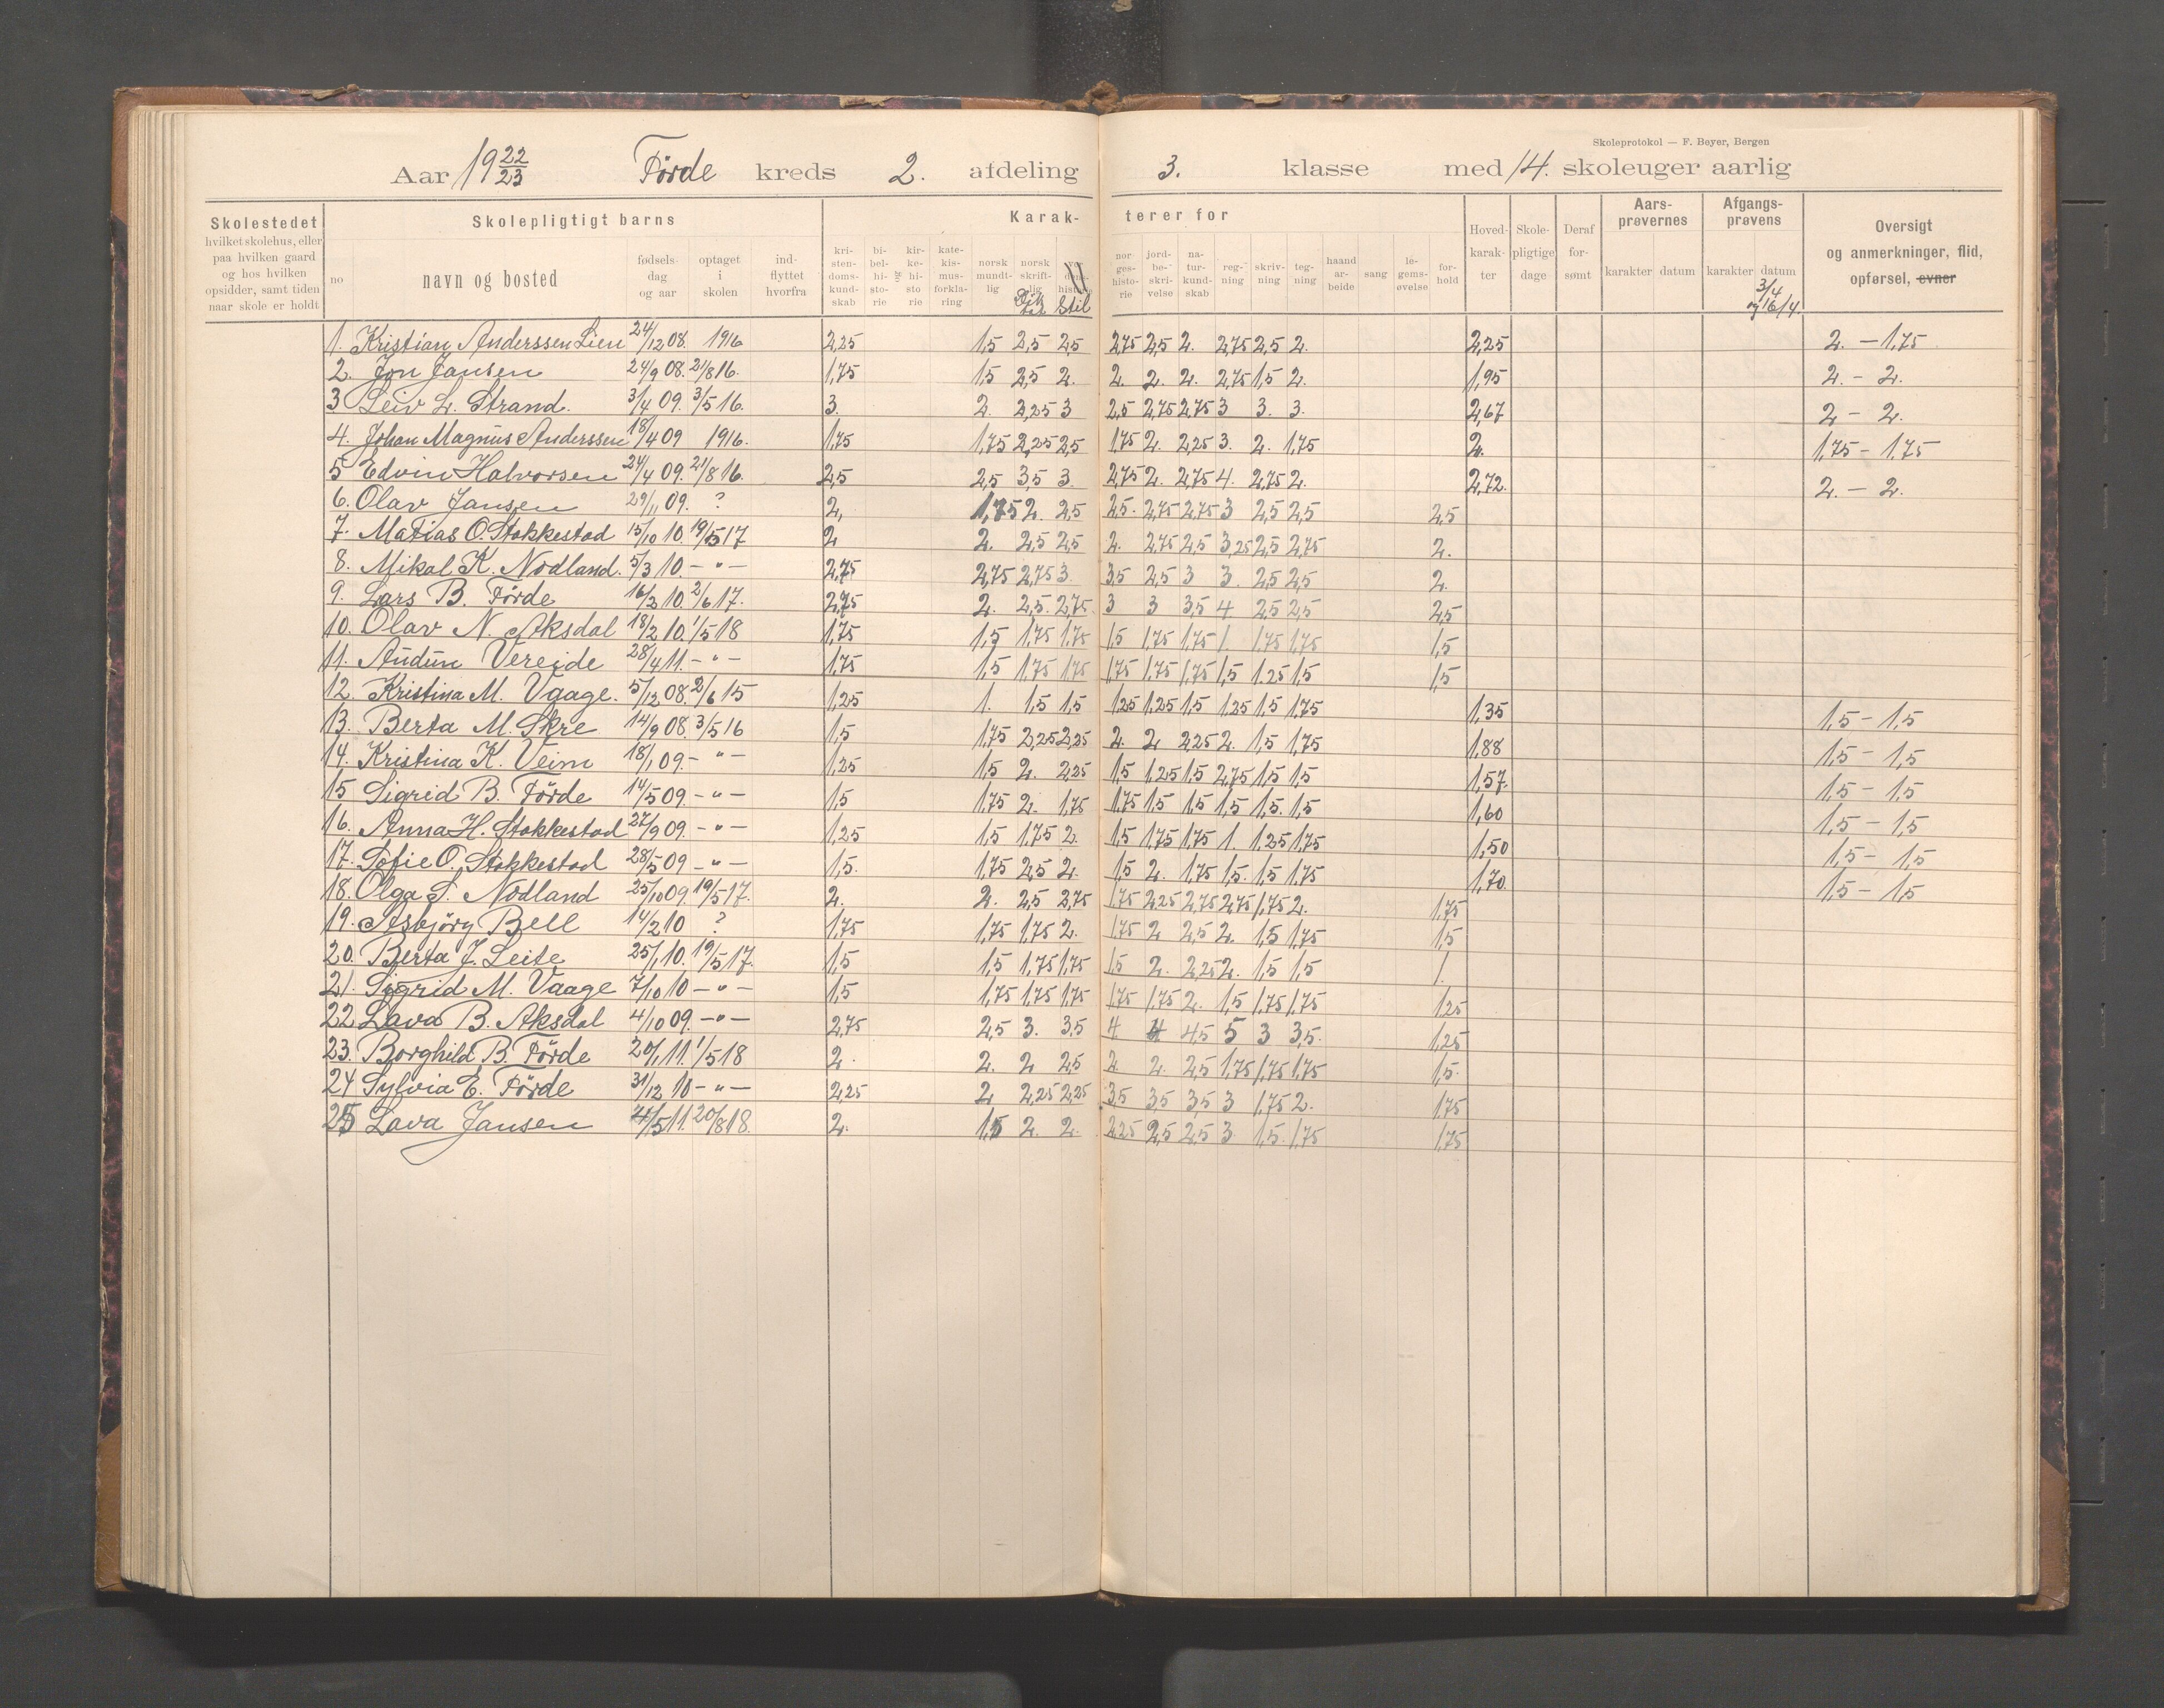 Skoleprotokol — F. Beyer, Bergen
Aar 19 22/23 Förde kreds 2. afdeling 3. klasse med 14. skoleuger aarlig
Skolestedet hvilket skolehus, eller paa hvilken gaard og hos hvilken opsidder, samt tiden naar skole er holdt
Skolepligtigt barns
no navn og bosted fødsels- dag og aar optaget i skolen ind- flyttet hvorfra
Karak- terer for
kri- sten- doms- kund- skab bi- bel- hi- sto- rie kir- ke- hi- sto rie kate- kis- mus- forkla- ring norsk mundt- lig norsk skrift- lig Stil nor ges- histo- rie jord- be- skri- velse na- tur- kund- skab reg- ning skriv- ning teg- ning haand ar- beide sang le- gems- øvelse for- hold
Hoved- karak- ter Skole- pligtige dage Deraf for- sømt Aars- prøvernes karakter datum Afgangs- prøvens karakter datum 3/4 og 16/4. Oversigt og anmerkninger, flid, opførsel, evner
1. Kristian Anderssen Lien 24/12 08. 1916 2,25 1,5 2,5 2,5 2,75 2,5 2. 2,75 2,5 2. 2,25 2. - 1,75
2. Jon Jansen 24/9 08. 21/8 16. 1,75 1,5 2,5 2. 2. 2. 2. 2,75 1,5 2. 1,95 2. - 2.
3 Leiv L. Strand. 3/4 09. 3/5 16. 3. 2. 2,25 3 2,5 2,75 2,75 3 3. 3. 2,67 2 - 2.
4. Johan Magnus Anderssen 18/4 09 1916. 1,75 1,75 2,25 2,5 1,75 2. 2,25 3. 2. 1,75 2. 1,75 - 1,75
5 Edvin Halvorsen 24/4 09. 21/8 16. 2,5 2,5 3,5 3. 2,75 2. 2,75 4. 2,75 2. 2,72. 2. - 2.
6. Olav Jansen 29/11 09. ? 2, 1,75 2. 2,5 2,5. 2,75 2,75 3 2,5 2,5 2,5
7. Matias O. Stokkestad 15/10 10. 19/5 17 2 2. 2,5 2,5 2. 2,75 2,5 3,25 2,5 2,75 2.
8. Mikal K. Nodland. 5/3 10. - " - 2,75 2,75 2,75 3. 3,5 2,5 3 3. 2,5 2,5 2.
9. Lars B. Förde 16/2 10. 2/6 17. 2,75 2. 2,5. 2,75. 3 3 3,5 4 2,5 2,5 2,5
10. Olav N. Aksdal 18/2 10. 1/5 18 1,75 1,5 1,75 1,75 1,5 1,75 1,75 1. 1,75 1,75 1,5
11. Audun Vereide 28/4 11. - " - 1,75 1,5 1,75 1,75 1,75 1,75 1,75 1,5 1.25 1,5 1,5
12. Kristina M. Vaage. 5/12 08. 2/6 15 1,25 1. 1,5 1,5 1,25 1,25 1,5 1,25 1,5 1,75 1,35 1,5 - 1,5
13. Berta M. Skre 14/9 08. 3/5 16 1,5 1,75 2,25 2,25 2. 2 2,25 2. 1,5 1,75 1,88 1,5 - 1,5
14. Kristina K. Veim 18/1 09. - " - 1,25 1,5 2. 2,25 1,5 1,25 1,5 2,75 1,5 1,5 1,57. 1,5 - 1,5
15 Sigrid B. Förde 14/5 09. - " - 1,5 1,75 2. 1,75 1,75 1,5 1,5 1,5 1,5. 1,5 1,60 1,5 - 1,5
16. Anna H. Stokkestad 27/9 09. - " - 1,25 1,5 1,75 2. 1,5 1,75 1,75 1. 1.25 1,75 1,50 1,5 - 1,5
17. Sofie O. Stokkestad 28/5 09 - " - 1,5. 1,75 2,5 2. 1,5 2. 1,75 1,5. 1,5 1,75 1,70 1,5 - 1,5
18. Olga S. Nodland 25/10 09. 19/5 17. 2. 2. 2,5 2,75 1,75 2,25 2,75 2,75 1,75 2. 1,75
19. Asbjörg Bell 14/2 10 ? 1,75 1,75 1,75 2. 1,75 2 2,5 2. 1,5 1,75 1,5
20. Berta J. Leite 25/1 10. 19/5 17. 1,5 1,5 1,75 1,75 1,5 2. 2,25 2. 1,5 1,5 1.
21. Sigrid M. Vaage 7/10 10 - " - 1,5 1,75 1,75 1,75 1,75 1,75 2. 1,5 1,75 1,75 1,25
22 Lava B. Aksdal 4/10 09. - " - 2,75 2,5 3. 3,5 4 4 4,5 5 3 3,5. 1,25
23. Borghild B. Förde 20/1 11. 1/5 18 2. 2. 2 2,5 2 2. 2,5 1,75 1,75 1,75 1,5.
24 Sylvia E. Förde 31/12 10 - " - 2,25 2 2,25 2,25 3,5 3,5 3,5 3 1,75 2. 1,75
25 Lava Jansen 21/5 11. 20/8 18. 2. 1,5 2. 2. 2,25 2,5 2,5 3. 1,5. 1,75 1,75